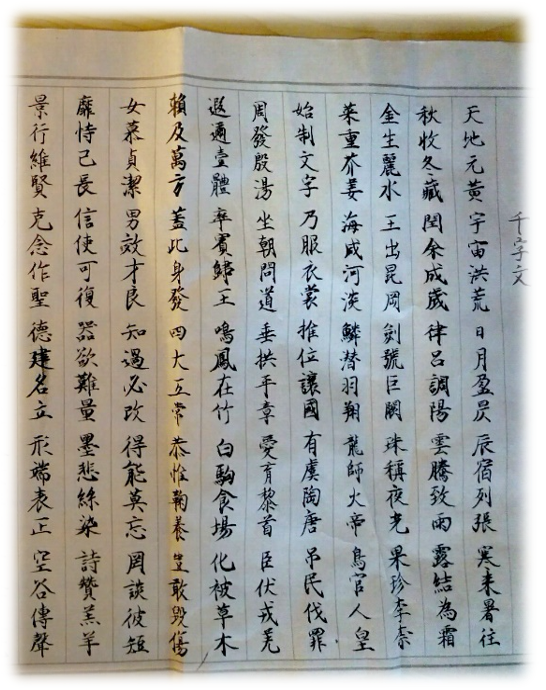 千字文
天地元黃宇宙洪荒日月盈昃辰宿列張寒来暑往
秋收冬藏閏余成歲律呂調陽雲騰致雨露結為霜
金生麗水王出昆岡劍號巨闕珠稱夜光果珍李柰
菜重芥姜海咸河淡鱗潛羽翔龍師火帝鳥官人皇
始制文字乃服衣裳推位讓國有虞陶唐吊民伐罪
周發殷湯坐朝問道垂拱平章愛育黎首臣伏戎羌
遐邇壹體率賓歸王鳴鳳在竹白駒食場化被草木
賴及萬方蓋此身發四大五常恭惟鞠養豈敢毀傷
女慕貞潔男效才良知過必改得能莫忘罔談彼短
靡恃己長信使可復器欲難量墨悲絲染詩贊羔羊
景行維賢克念作聖德建名立形端表正空谷傳聲